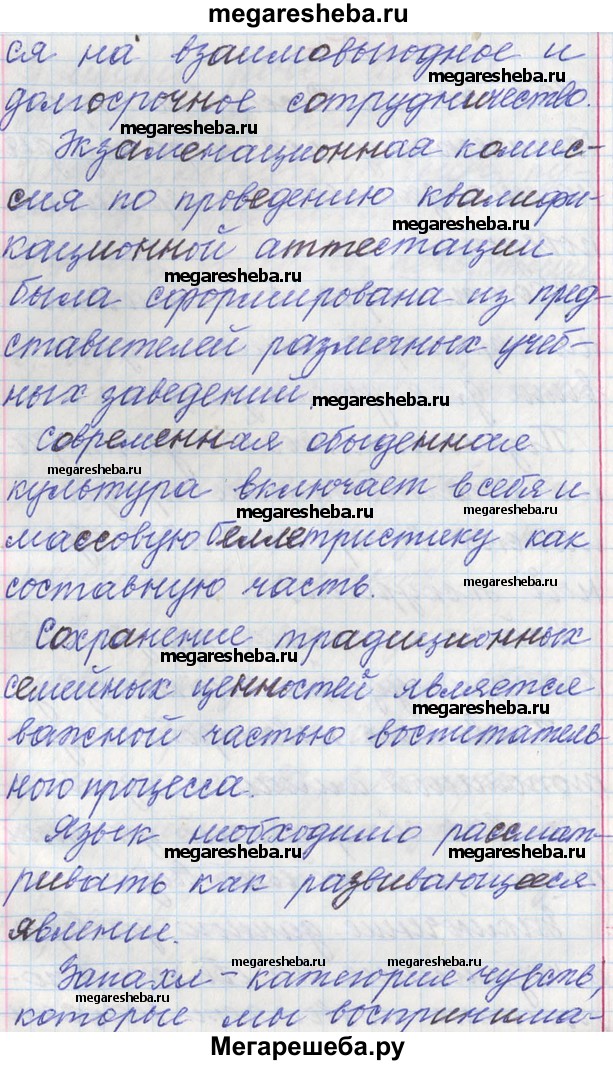 megaresheba.ru
ся на взаимовыгодное и
megaresheba.ru
долгосрочное сотрудничество.
megaresheba.ru
Экзаменационная комис-
сия по проведению квалифи-
megaresheba.ru
кационной аттестации
megaresheba.ru
была сформирована из пред-
ставителей различных учеб-
ных заведений.
megaresheba.ru
Современная обыденная
megaresheba.ru
культура включает в себя и
megaresheba.ru megaresheba.ru
массовую беллетристику как
составную часть.
megaresheba.ru
Сохранение традиционных
megaresheba.ru
семейных ценностей является
megaresheba.ru
важной частью воспитатель-
ного процесса.
Язык необходимо рассмат-
megaresheba.ru megaresheba.ru
ривать как развивающееся
явление.
megaresheba.ru megaresheba.ru
Запахи - категория чувств,
megaresheba.ru
которые мы воспринима-
Мегарешеба.ру